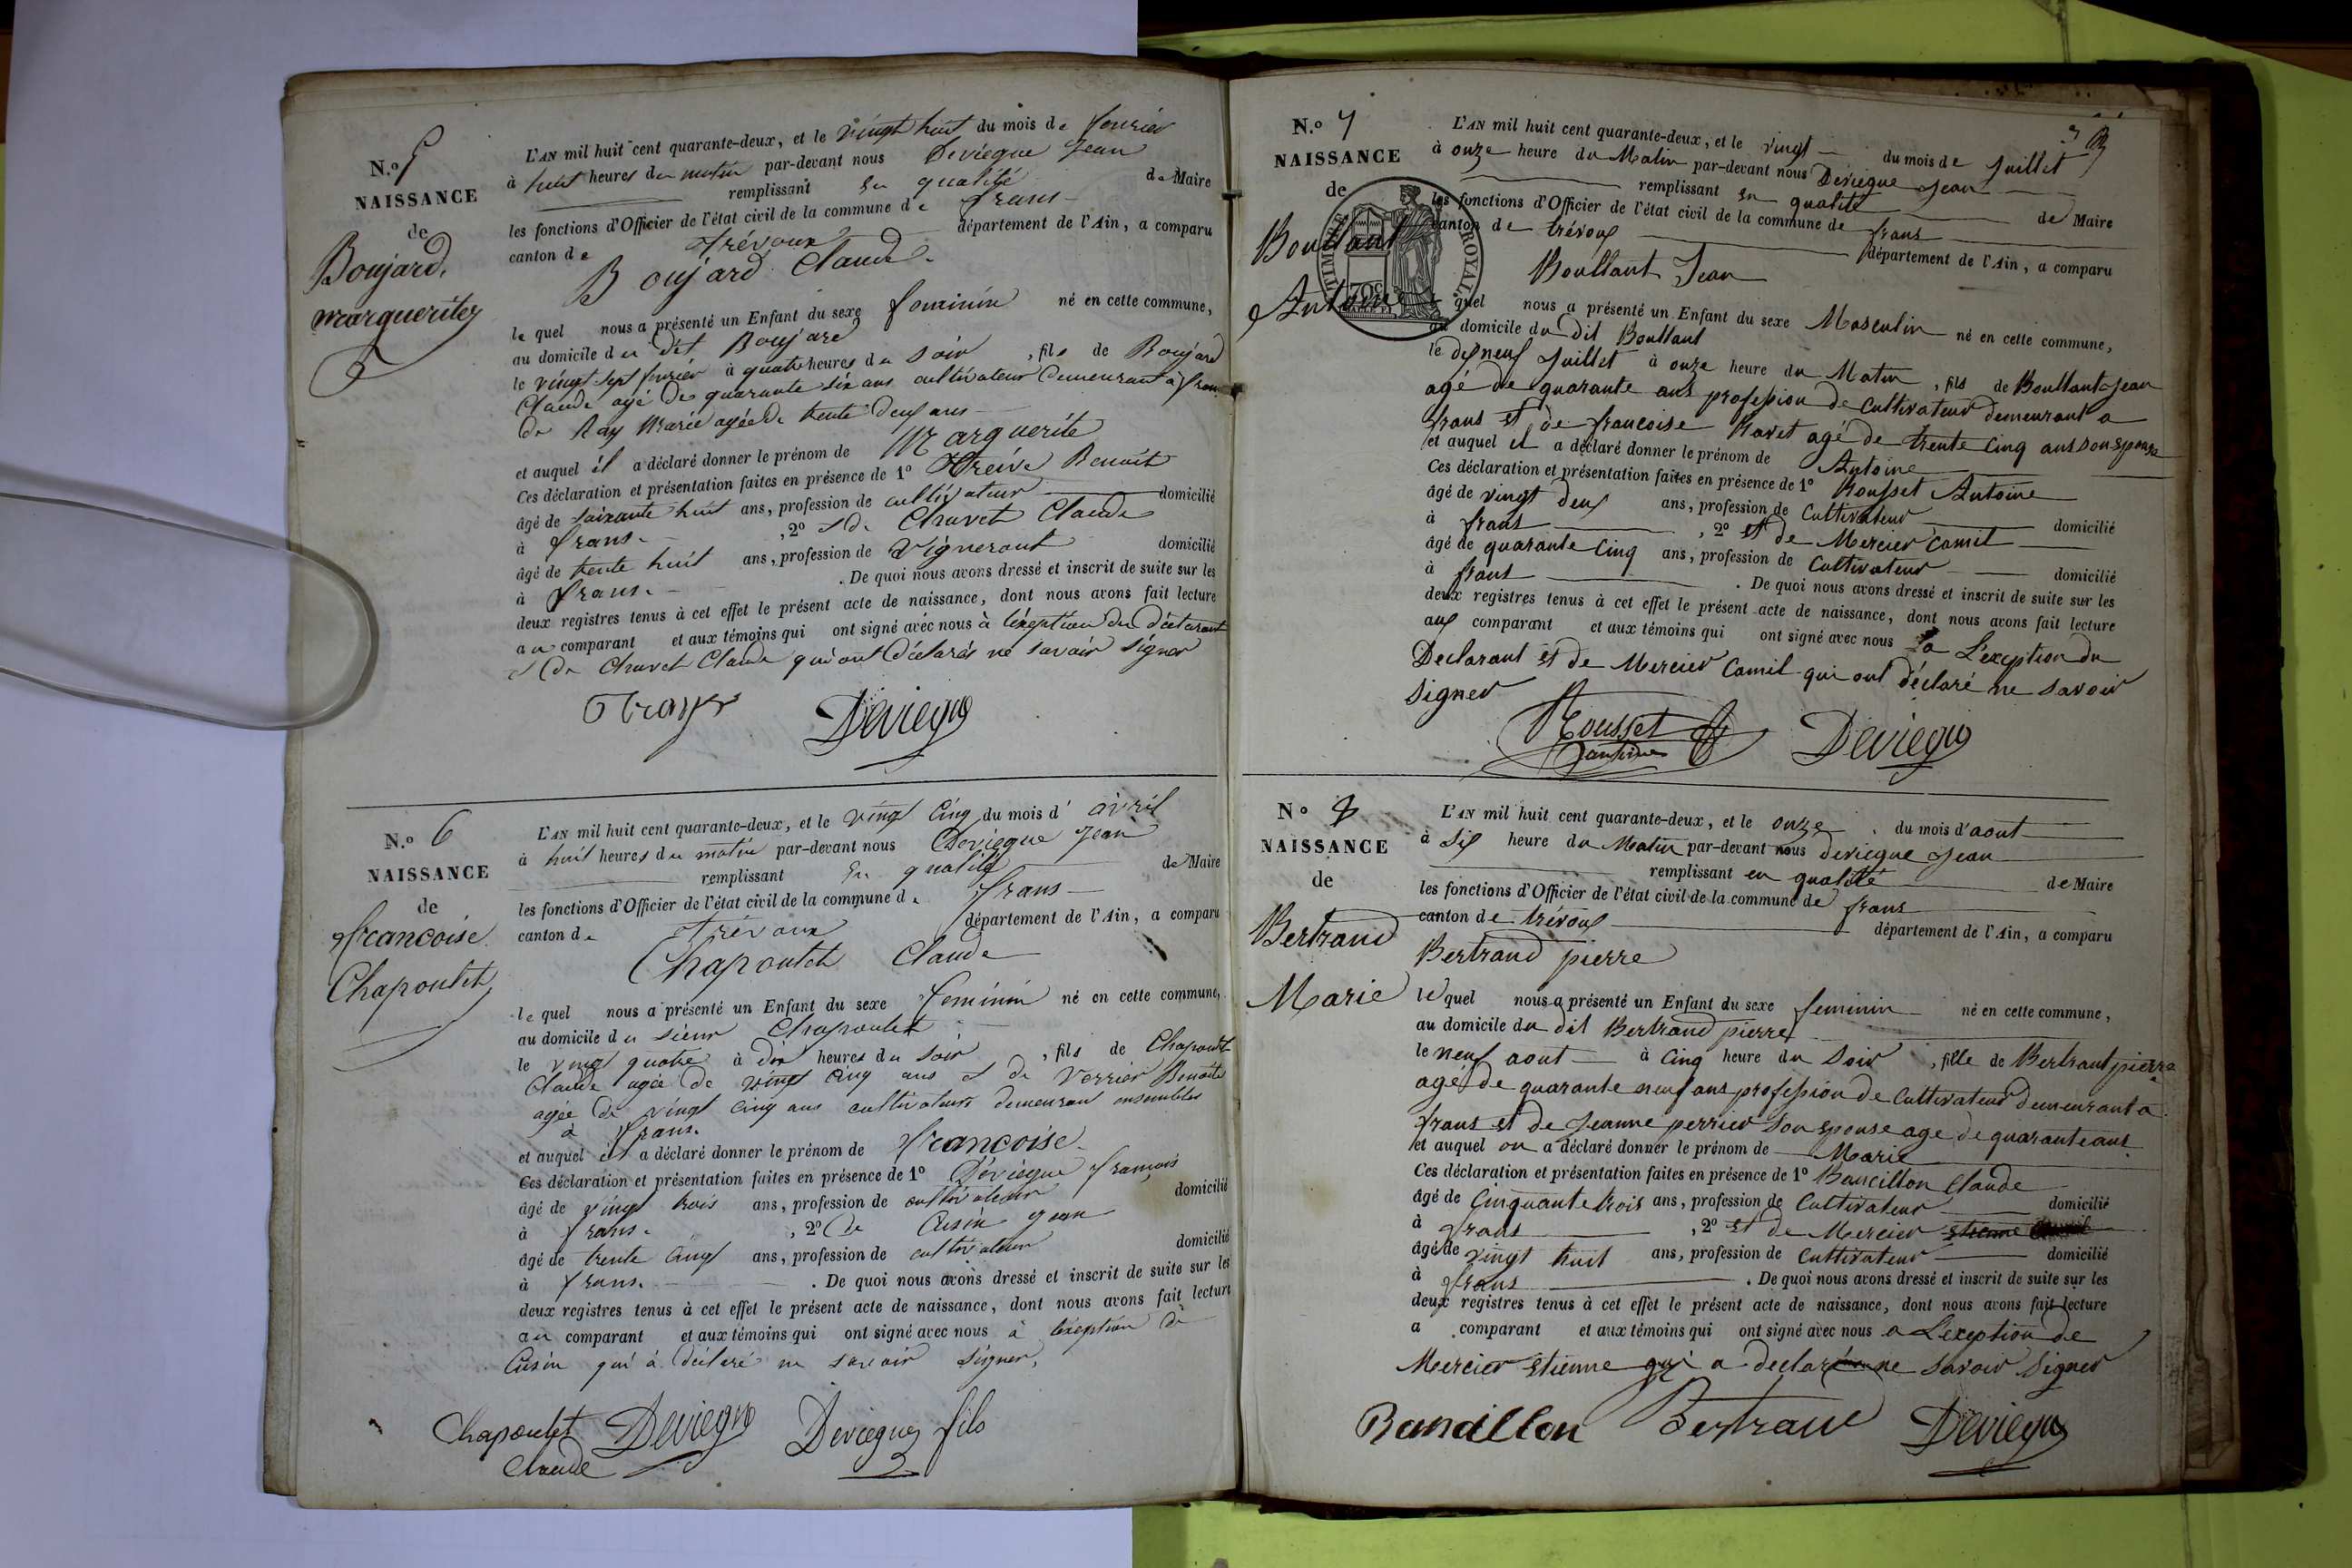 N.o 5
NAISSANCE
de
Boujard
marguerite
L'AN mil huit cent quarante-deux, et le vingt huit du mois de fevrier
à huit heures du matin par-devant nous Deviegue Jean
remplissant en qualité de Maire
les fonctions d'Officier de l'état civil de la commune de frans
canton de Trévoux département de l'Ain, a comparu
Boujard Claude
le quel nous a présenté un Enfant du sexe feminin né en cette commune,
au domicile du dit Boujard
le vingt sept fevrier à quatre heures du soir, fils de Boujard
Claude agé de quarante six ans cultivateur demeurant à frans
de Ray Marie agée de trente deux ans
et auquel il a déclaré donner le prénom de Marguerite
Ces déclaration et présentation faites en présence de 1o Treive Benoit
âgé de soixante huit ans, profession de cultivateur domicilié
à frans, 2o et de Chavet Claude
âgé de trente huit ans, profession de Vigneront domicilié
à frans. De quoi nous avons dressé et inscrit de suite sur les
deux registres tenus à cet effet le présent acte de naissance, dont nous avons fait lecture
au comparant et aux témoins qui ont signé avec nous à l'éxeption du déclarant
et de Chavet Claude qui ont déclarés ne savoir signer
Deviegue
N.o 6
NAISSANCE
de
francoise
Chapoutet
L'AN mil huit cent quarante-deux, et le vingt Cinq du mois d'avril
à huit heures du matin par-devant nous Deviegue Jean
remplissant En qualité de Maire
les fonctions d'Officier de l'état civil de la commune de frans
canton de Trévoux département de l'Ain, a comparu
Chapoutet Claude
le quel nous a présenté un Enfant du sexe feminin né en cette commune,
au domicile du sieur Chapoutet
le vingt quatre à dix heures du soir, fils de Chapoutet
Claude agée de vingt cinq ans et de Verrier Benoite
agée de vingt cinq ans cultivateurs demeurant ensembles
à frans.
et auquel il a déclaré donner le prénom de francoise
Ces déclaration et présentation faites en présence de 1o Déviegue françois
âgé de vingt trois ans, profession de cultivateur domicilié
à frans. , 2o de Cusin jean
âgé de trente cinq ans, profession de cultivateur domicilié
à frans. De quoi nous avons dressé et inscrit de suite sur les
deux registres tenus à cet effet le présent acte de naissance, dont nous avons fait lecture
au comparant et aux témoins qui ont signé avec nous à l'éxeption de
Cusin qui à déclaré ne savoir signer,
Chapoutet Deviegue Deviegue fils
Claude
N.o 7
NAISSANCE
de
Boullant
Antoine
TIMBRE ROYAL
70c
L'AN mil huit cent quarante-deux, et le vingt du mois de Juillet
à onze heure du Matin par-devant nous Deviegue Jean
remplissant en qualité de Maire
les fonctions d'Officier de l'état civil de la commune de frans
canton de trévoux département de l'Ain, a comparu
Boullant Jean
le quel nous a présenté un Enfant du sexe Masculin né en cette commune,
au domicile du dit Boullant
le dixneuf Juillet à onze heure du Matin, fils de Boullant Jean
agé de quarante ans profession de Cultivateur demeurant a
frans et de francoise Ravet agé de trente cinq ans son epouse
et auquel il a déclaré donner le prénom de Antoine
Ces déclaration et présentation faites en présence de 1o Rousset Antoine
âgé de vingt deux ans, profession de Cultivateur domicilié
à frans, 2o et de Mercier Camil
âgé de quarante Cinq ans, profession de Cultivateur domicilié
à frans. De quoi nous avons dressé et inscrit de suite sur les
deux registres tenus à cet effet le présent acte de naissance, dont nous avons fait lecture
aux comparant et aux témoins qui ont signé avec nous a L'exception du
Declarant et de Mercier Camil qui ont déclaré ne savoir
signer
Rousset Deviegue
antoine
No 8
NAISSANCE
de
Bertrand
Marie
L'AN mil huit cent quarante-deux, et le onze du mois d'aout
à six heure du Matin par-devant nous deviegue Jean
remplissant en qualité de Maire
les fonctions d'Officier de l'état civil de la commune de frans
canton de trévoux département de l'Ain, a comparu
Bertrand pierre
le quel nous a présenté un Enfant du sexe feminin né en cette commune,
au domicile du dit Bertrand pierre
le neuf aout à cinq heure du Soir, fille de Bertrant pierre
agé de quarante neuf ans profession de Cultivateur demeurant a
frans et de Jeanne perrier son epouse age de quarante ans
et auquel on a déclaré donner le prénom de Marie
Ces déclaration et présentation faites en présence de 1o Bancillon Claude
âgé de Cinquante trois ans, profession de Cultivateur domicilié
à frans, 2o et de Mercier etienne
âgé de vingt huit ans, profession de Cultivateur domicilié
à frans. De quoi nous avons dressé et inscrit de suite sur les
deux registres tenus à cet effet le présent acte de naissance, dont nous avons fait lecture
a comparant et aux témoins qui ont signé avec nous a L'exception de
Mercier etienne qui a declaré ne savoir signer
Bancillon Bertrand Deviegue